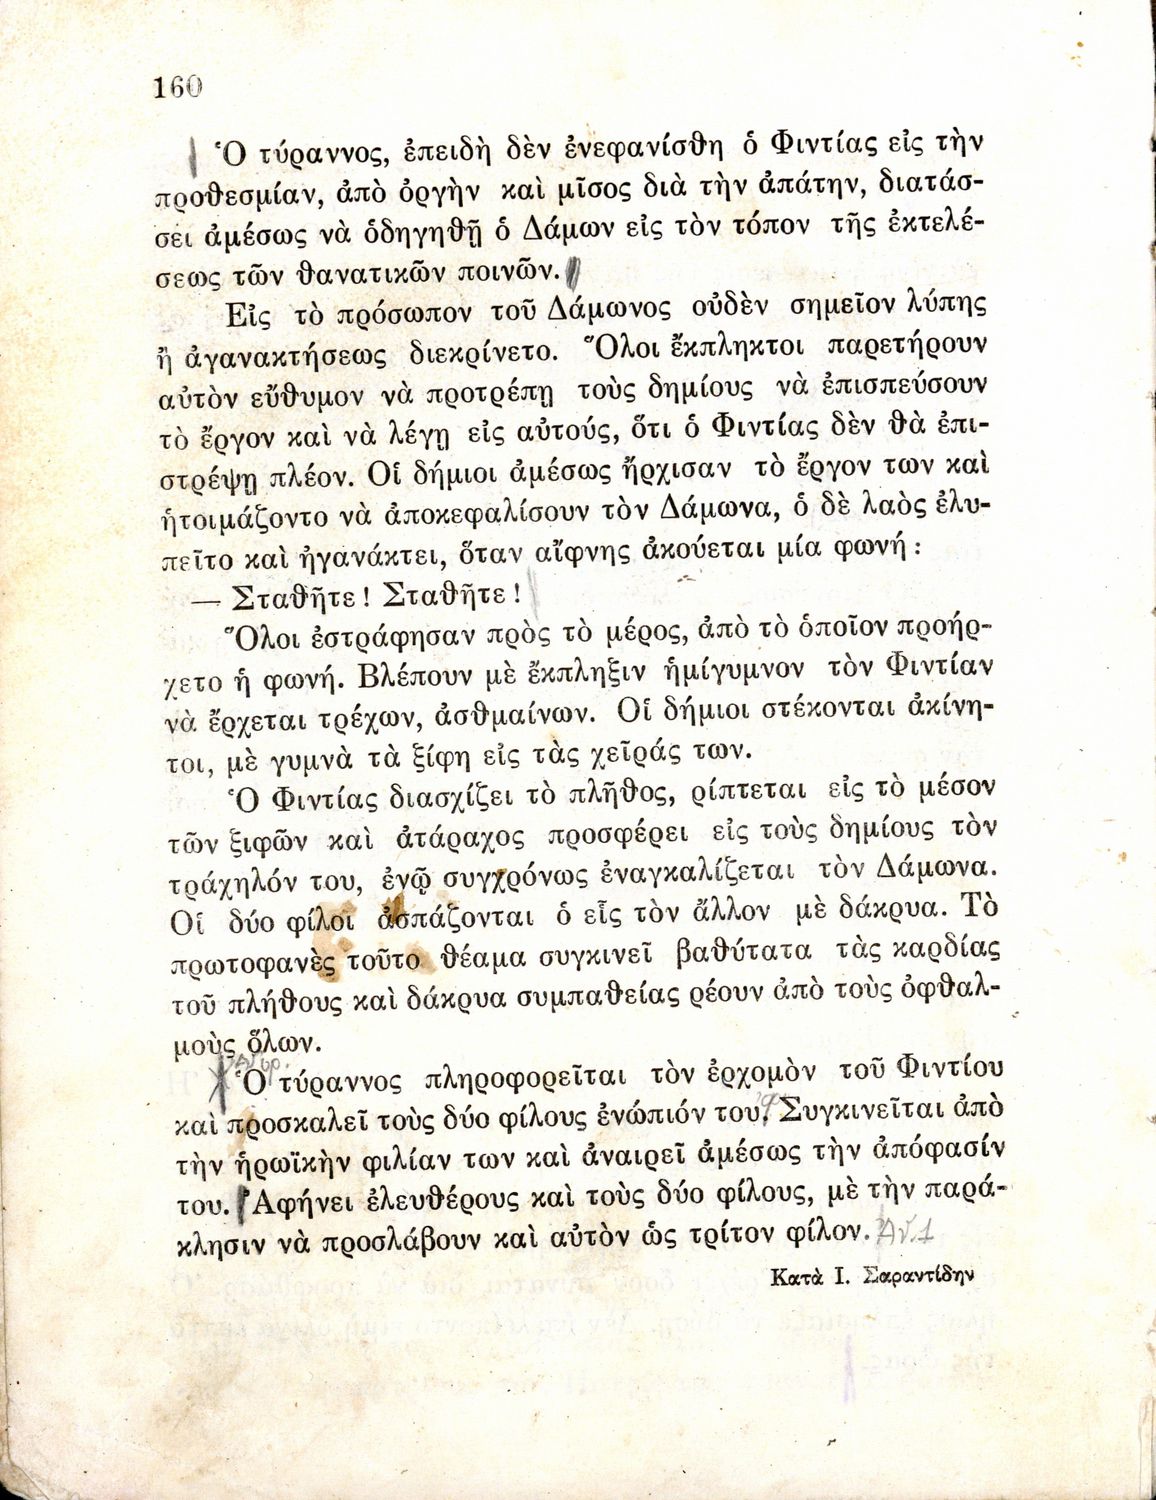 160
Ὁ τύραννος, ἐπειδὴ δὲν ἐνεφανίσθη ὁ Φιντίας εἰς τὴν
προθεσμίαν, ἀπὸ ὀργὴν καὶ μῖσος διὰ τὴν ἀπάτην, διατάσ-
σει ἀμέσως νὰ ὁδηγηθῇ ὁ Δάμων εἰς τὸν τόπον τῆς ἐκτελέ-
σεως τῶν θανατικῶν ποινῶν.
Εἰς τὸ πρόσωπον τοῦ Δάμωνος οὐδὲν σημεῖον λύπης
ἢ ἀγανακτήσεως διεκρίνετο. Ὅλοι ἔκπληκτοι παρετήρουν
αὐτὸν εὔθυμον νὰ προτρέπῃ τοὺς δημίους νὰ ἐπισπεύσουν
τὸ ἔργον καὶ νὰ λέγῃ εἰς αὐτούς, ὅτι ὁ Φιντίας δὲν θὰ ἐπι-
στρέψῃ πλέον. Οἱ δήμιοι ἀμέσως ἤρχισαν τὸ ἔργον των καὶ
ἡτοιμάζοντο νὰ ἀποκεφαλίσουν τὸν Δάμωνα, ὁ δὲ λαὸς ἐλυ-
πεῖτο καὶ ἠγανάκτει, ὅταν αἴφνης ἀκούεται μία φωνή :
— Σταθῆτε ! Σταθῆτε !
Ὅλοι ἐστράφησαν πρὸς τὸ μέρος, ἀπὸ τὸ ὁποῖον προήρ-
χετο ἡ φωνή. Βλέπουν μὲ ἔκπληξιν ἡμίγυμνον τὸν Φιντίαν
νὰ ἔρχεται τρέχων, ἀσθμαίνων. Οἱ δήμιοι στέκονται ἀκίνη-
τοι, μὲ γυμνὰ τὰ ξίφη εἰς τὰς χεῖράς των.
Ὁ Φιντίας διασχίζει τὸ πλῆθος, ρίπτεται εἰς τὸ μέσον
τῶν ξιφῶν καὶ ἀτάραχος προσφέρει εἰς τοὺς δημίους τὸν
τράχηλόν του, ἐνῷ συγχρόνως ἐναγκαλίζεται τὸν Δάμωνα.
Οἱ δύο φίλοι ἀσπάζονται ὁ εἷς τὸν ἄλλον μὲ δάκρυα. Τὸ
πρωτοφανὲς τοῦτο θέαμα συγκινεῖ βαθύτατα τὰς καρδίας
τοῦ πλήθους καὶ δάκρυα συμπαθείας ρέουν ἀπὸ τοὺς ὀφθαλ-
μοὺς ὅλων.
Ὁ τύραννος πληροφορεῖται τὸν ἐρχομὸν τοῦ Φιντίου
καὶ προσκαλεῖ τοὺς δύο φίλους ἐνώπιόν του. Συγκινεῖται ἀπὸ
τὴν ἡρωϊκὴν φιλίαν των καὶ ἀναιρεῖ ἀμέσως τὴν ἀπόφασίν
του. Ἀφήνει ἐλευθέρους καὶ τοὺς δύο φίλους, μὲ τὴν παρά-
κλησιν νὰ προσλάβουν καὶ αὐτὸν ὡς τρίτον φίλον.
Κατὰ Ι. Σαραντίδην